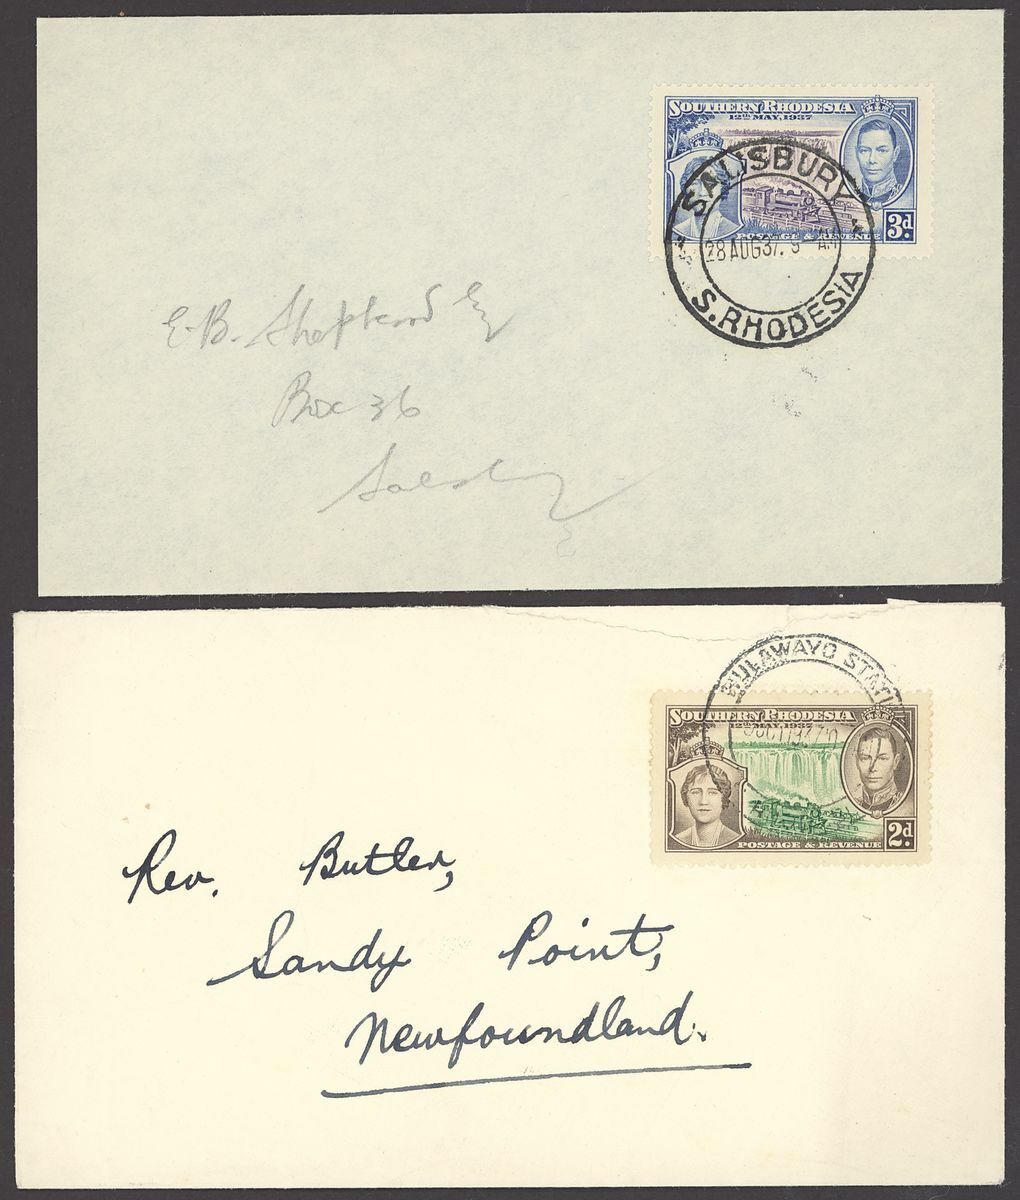 SOUTHERN RHODESIA
12TH MAY, 1937
3d.
POSTAGE & REVENUE
SALISBURY
28 AUG 37. 9 - AM
S. RHODESIA
E. B. Esq
Box 36
SOUTHERN RHODESIA
12TH MAY, 1937
2d.
POSTAGE & REVENUE
BULAWAYO STATI
Rev. Butler,
Sandy Point,
Newfoundland.